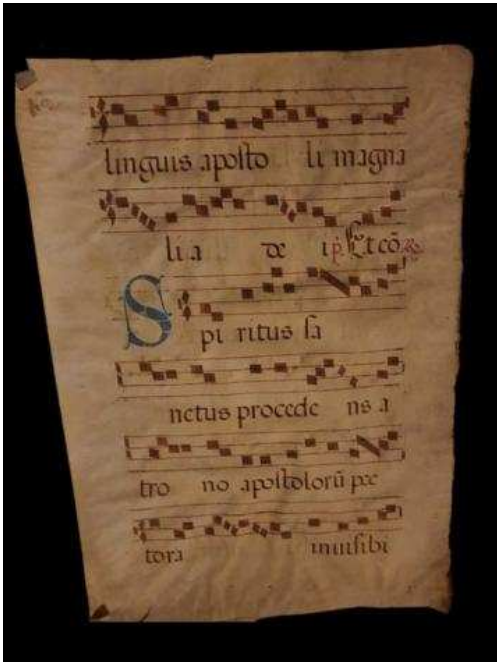 linguis aposto li magna
li a de i p. Et cō
Spi ritus sa
nctus procede ns a
tro no apostolorū pec
tora inuisibi